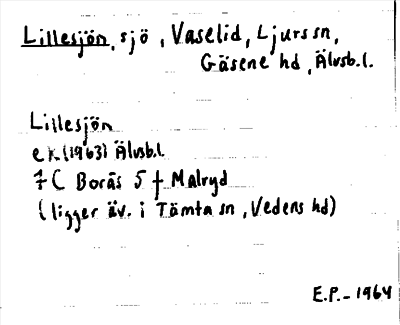 Lillesjön, sjö, Vaselid, Ljurs sn,
Gäsene hd, Älvsb.l.
Lillesjön
ek (1963) Älvsb.l.
7 C Borås 5 f Malryd
(ligger äv. i Tämta sn, Vedens hd)
E.P. - 1964